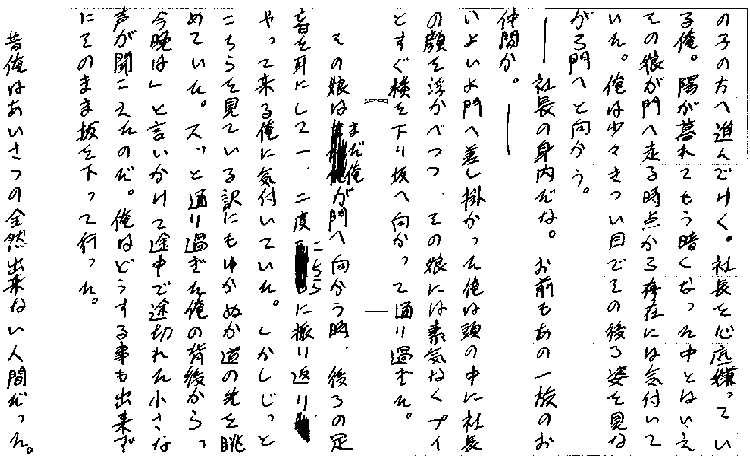 の子の方へ進んでゆく。社長を心底嫌ってい
る俺。陽が暮れてもう暗くなった中とはいえ
その娘が門へ走る時点から存在には気付いて
いた。俺は少々きつい目でその後ろ姿を見な
がら門へと向かう。
――社長の身内だな。お前もあの一族のお
仲間か。――
いよいよ門へ差し掛かった俺は頭の中に社長
の顔を浮かべつつ、その娘には素気なくプイ
とすぐ横を下り坂へ向かって通り過ぎた。
その娘はまだ俺が門へ向かう時、後ろの足
音を耳にして一、二度こちらに振り返り、
やって来る俺に気付いていた。しかしじっと
こちらを見ている訳にもゆかぬか道の先を眺
めていた。スッと通り過ぎた俺の背後から「
今晩は」と言いかけて途中で途切れた小さな
声が聞こえたのだ。俺はどうする事も出来ず
にそのまま坂を下って行った。
昔俺はあいさつの全然出来ない人間だった。